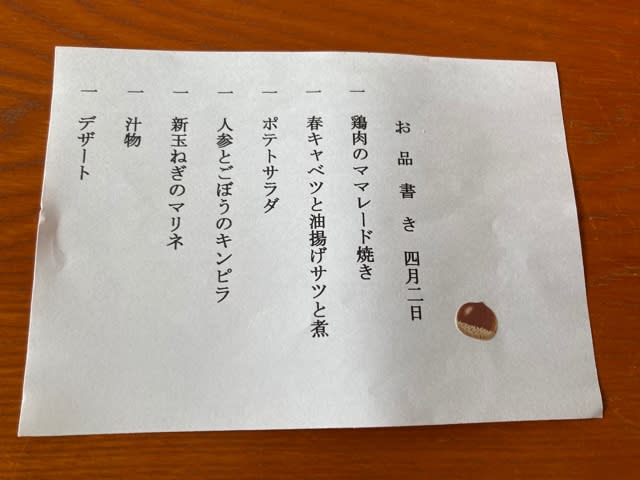 お品書き 四月二日
一 鶏肉のママレード焼き
一 春キャベツと油揚げサツと煮
一 ポテトサラダ
一 人参とごぼうのキンピラ
一 新玉ねぎのマリネ
一 汁物
一 デザート